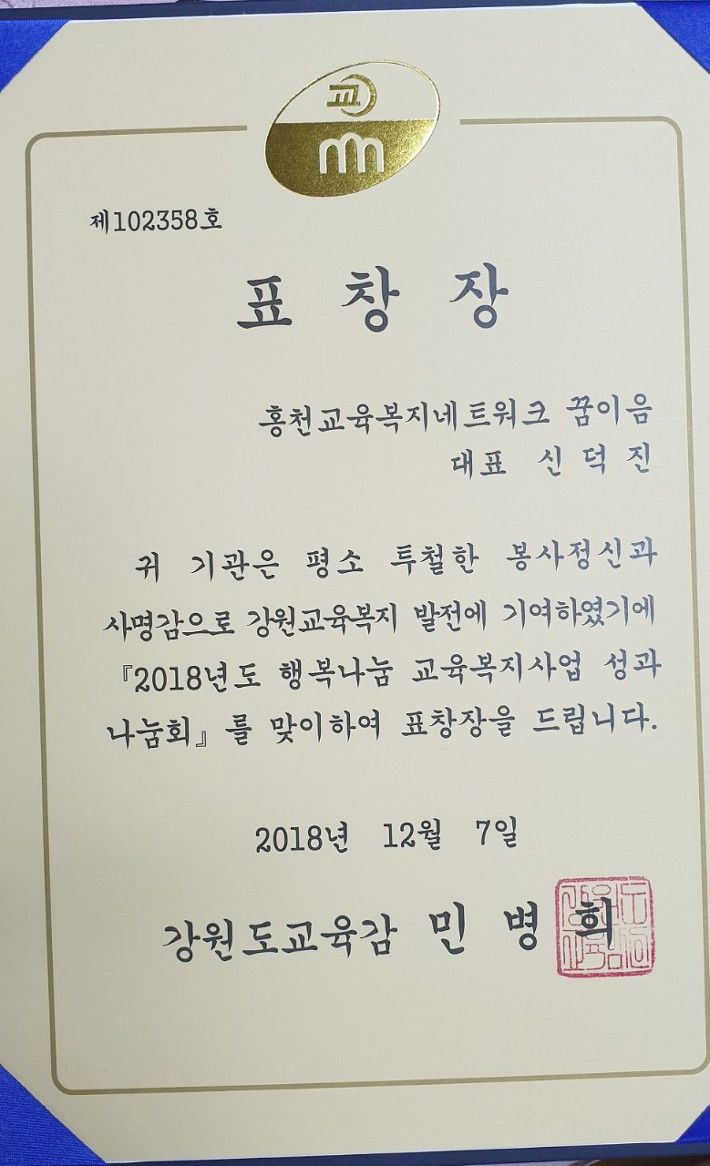 교
제102358호
표 창 장
홍천교육복지네트워크 꿈이음
대표 신 덕 진
귀 기관은 평소 투철한 봉사정신과
사명감으로 강원교육복지 발전에 기여하였기에
『2018년도 행복나눔 교육복지사업 성과
나눔회』를 맞이하여 표창장을 드립니다.
2018년 12월 7일
강원도교육감 민 병 희